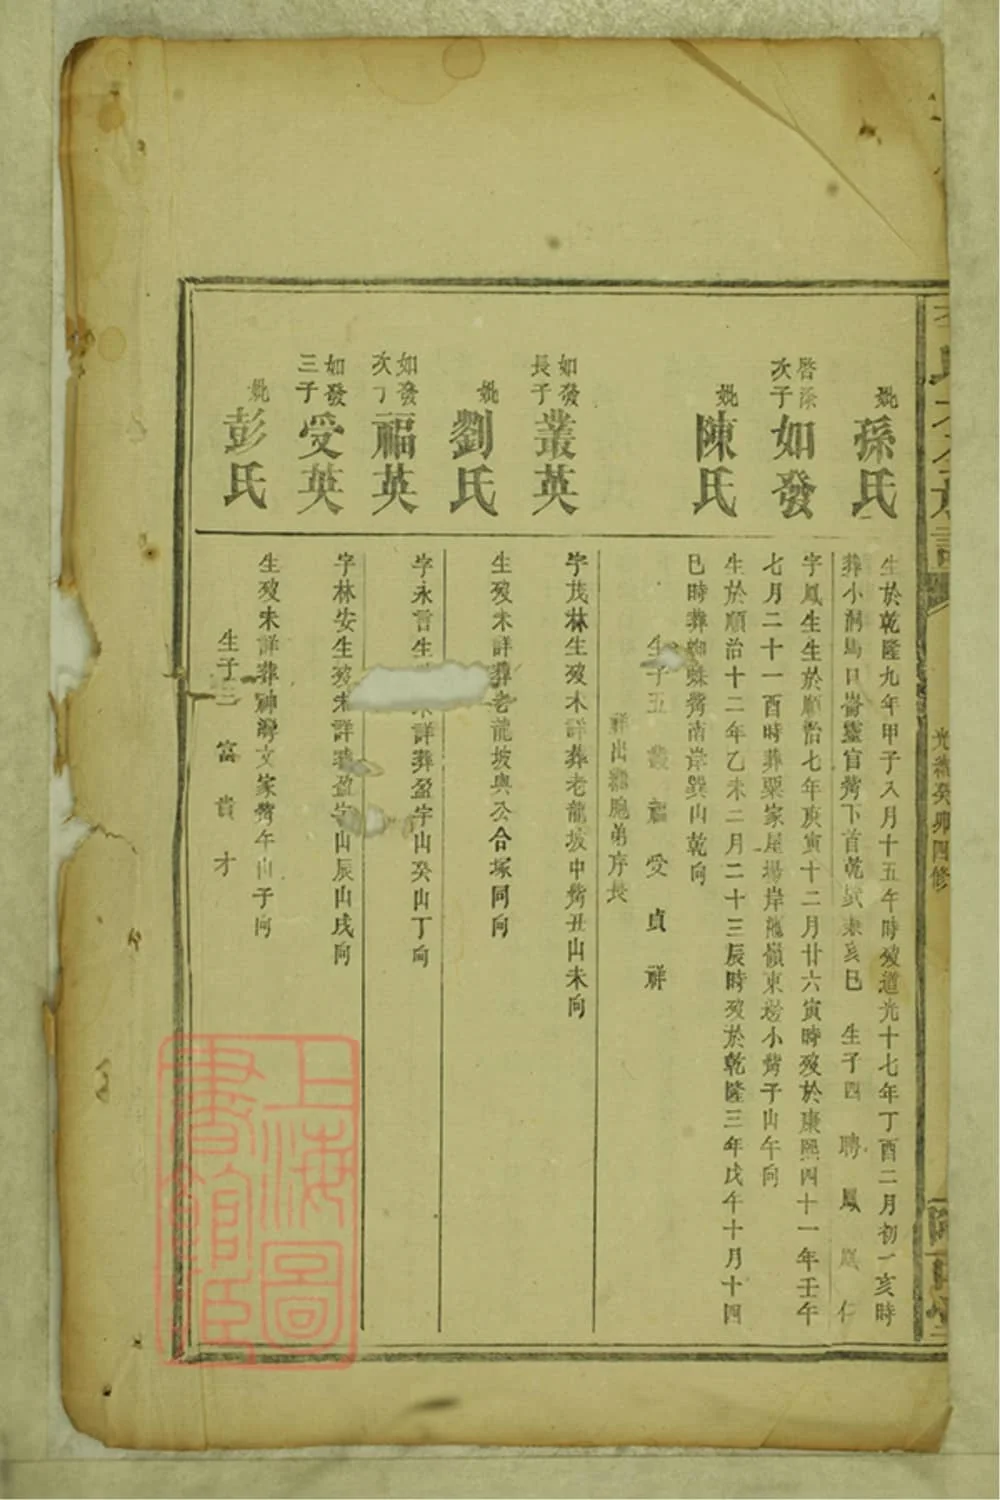 光緒癸卯四修
妣
孫氏
生於乾隆九年甲子八月十五午時歿道光十七年丁酉二月初一亥時
葬小洞馬口崙靈官灣下首乾巽兼亥巳 生子四 聘 鳳 鳳 仁
啓深
次子
如發
字鳳生生於順治七年庚寅十二月廿六寅時歿於康熙四十一年壬午
七月二十一酉時葬粟家屋場岸龍嶺東邊小灣子山午向
妣
陳氏
生於順治十二年乙未二月二十三辰時歿於乾隆三年戊午十月十四
巳時葬蜘蛛灣南岸巽山乾向
生子五 叢 福 受 貞 祥
祥出繼胞弟序長
如發
長子
叢英
字茂林生歿未詳葬老龍坡中灣丑山未向
妣
劉氏
生歿未詳葬老龍坡與公合塚同向
如發
次子
福英
字永言生 未詳葬盈字山癸山丁向
如發
三子
受英
字林安生歿未詳葬盈字山辰山戌向
妣
彭氏
生歿未詳葬神灣文家灣午山子向
生子三 富 貴 才
上海圖
書館藏